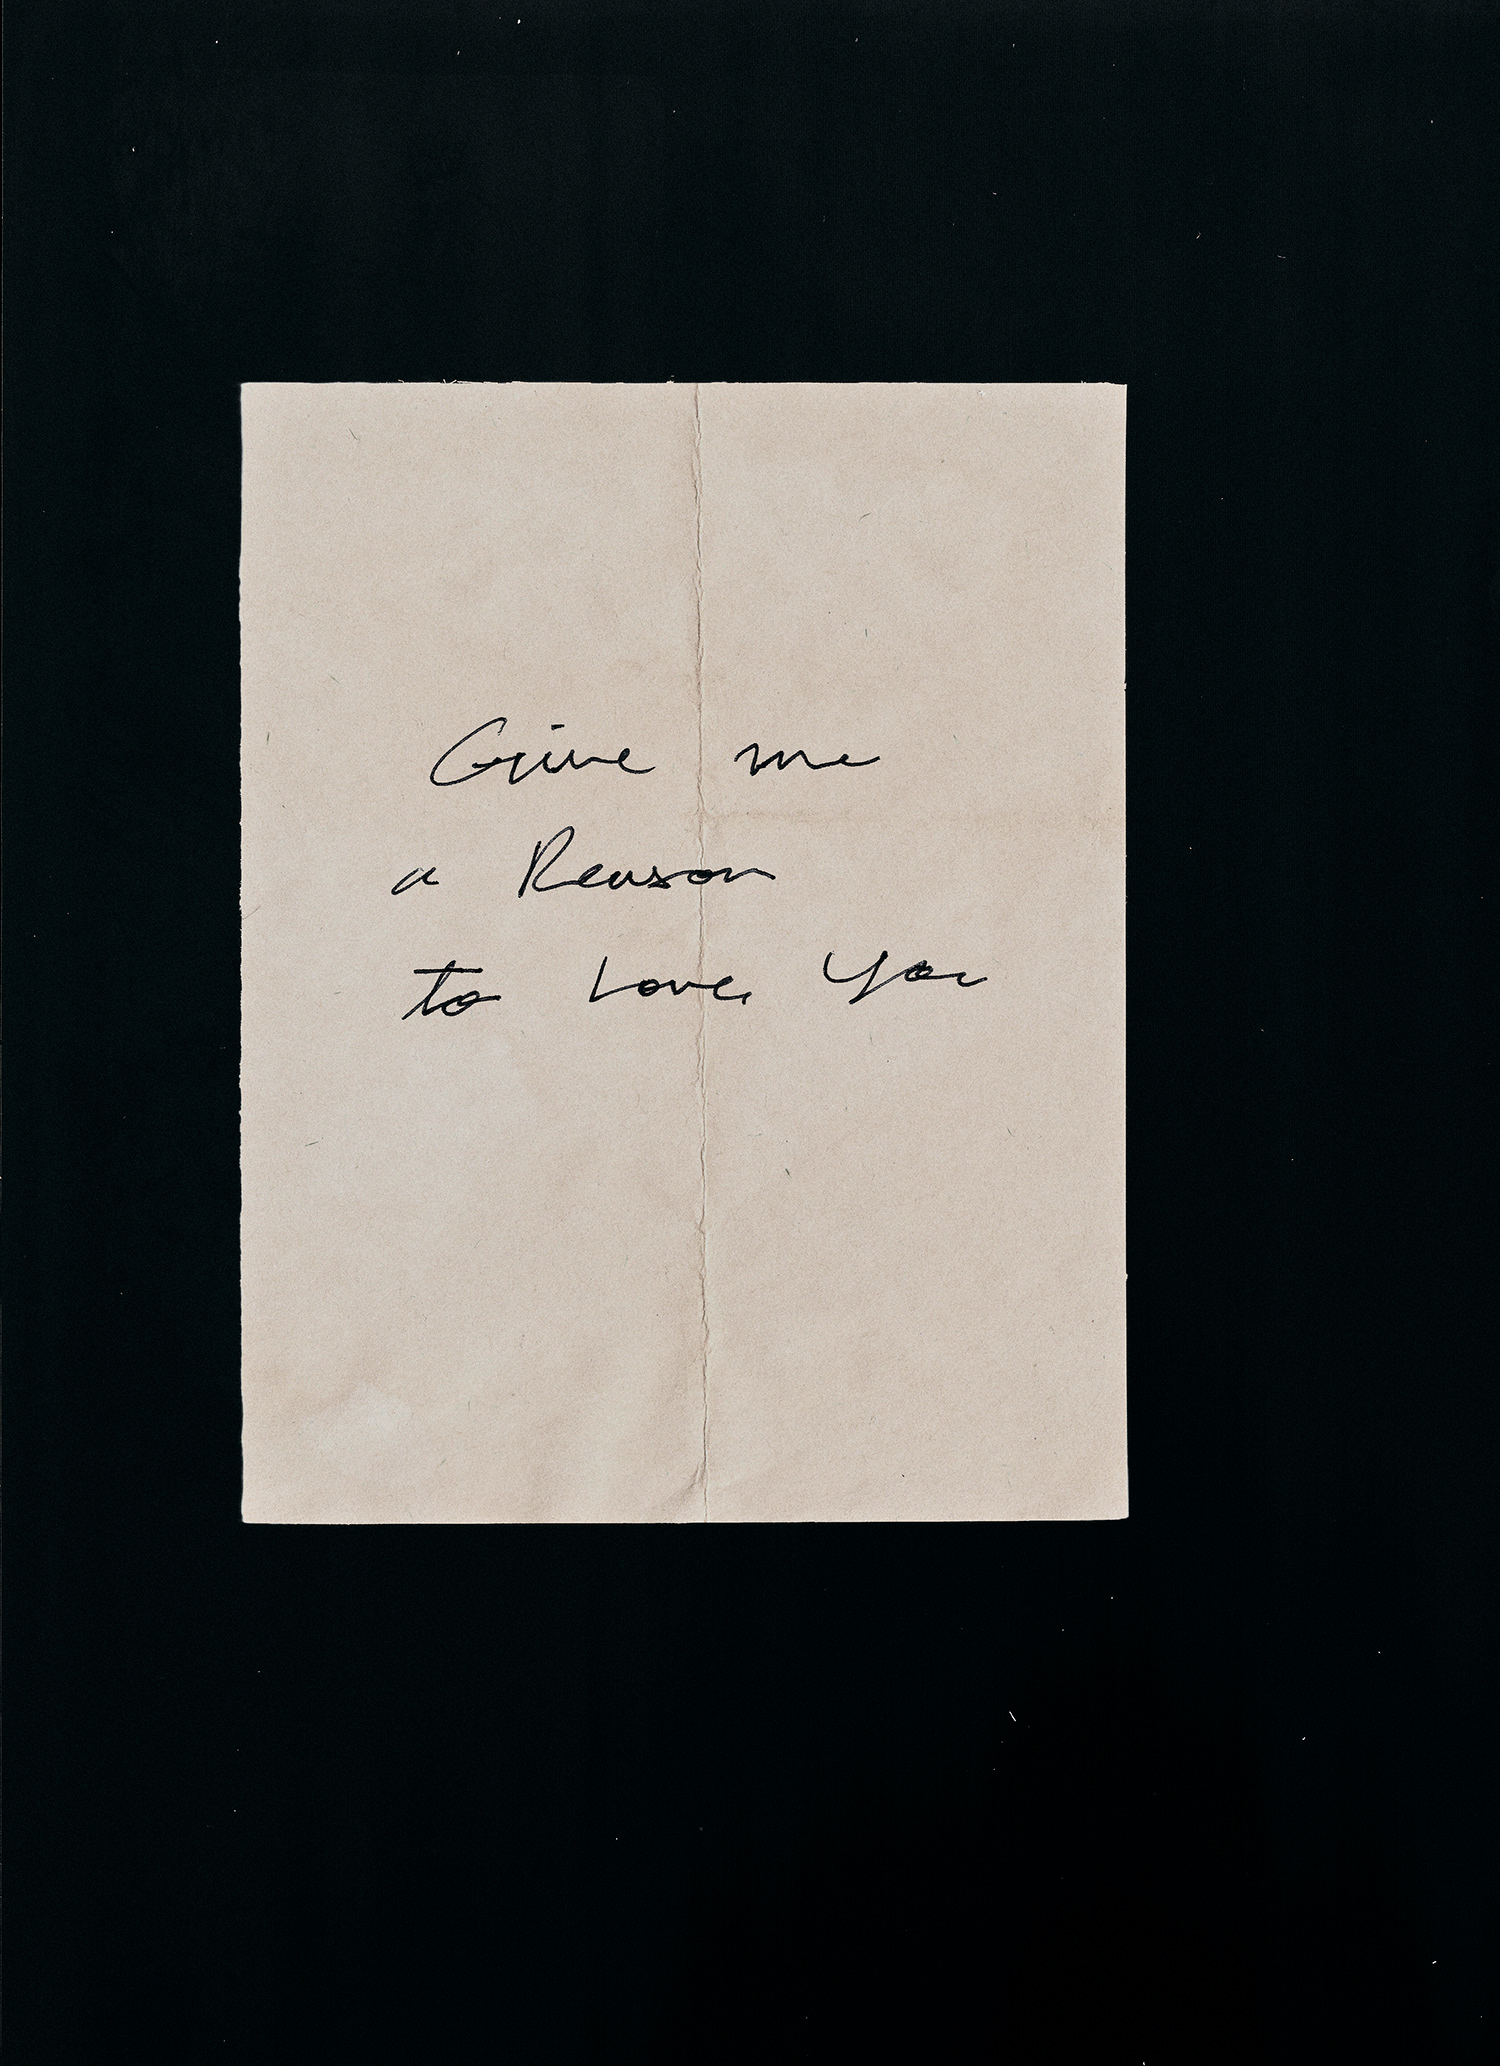 Give me
a Reason
to Love You